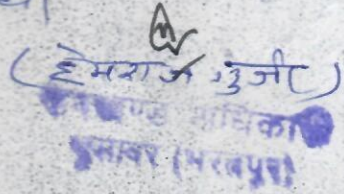 (हेमराज गुर्जर)
उपखण्ड अधिकारी
भुसावर (भरतपुर)